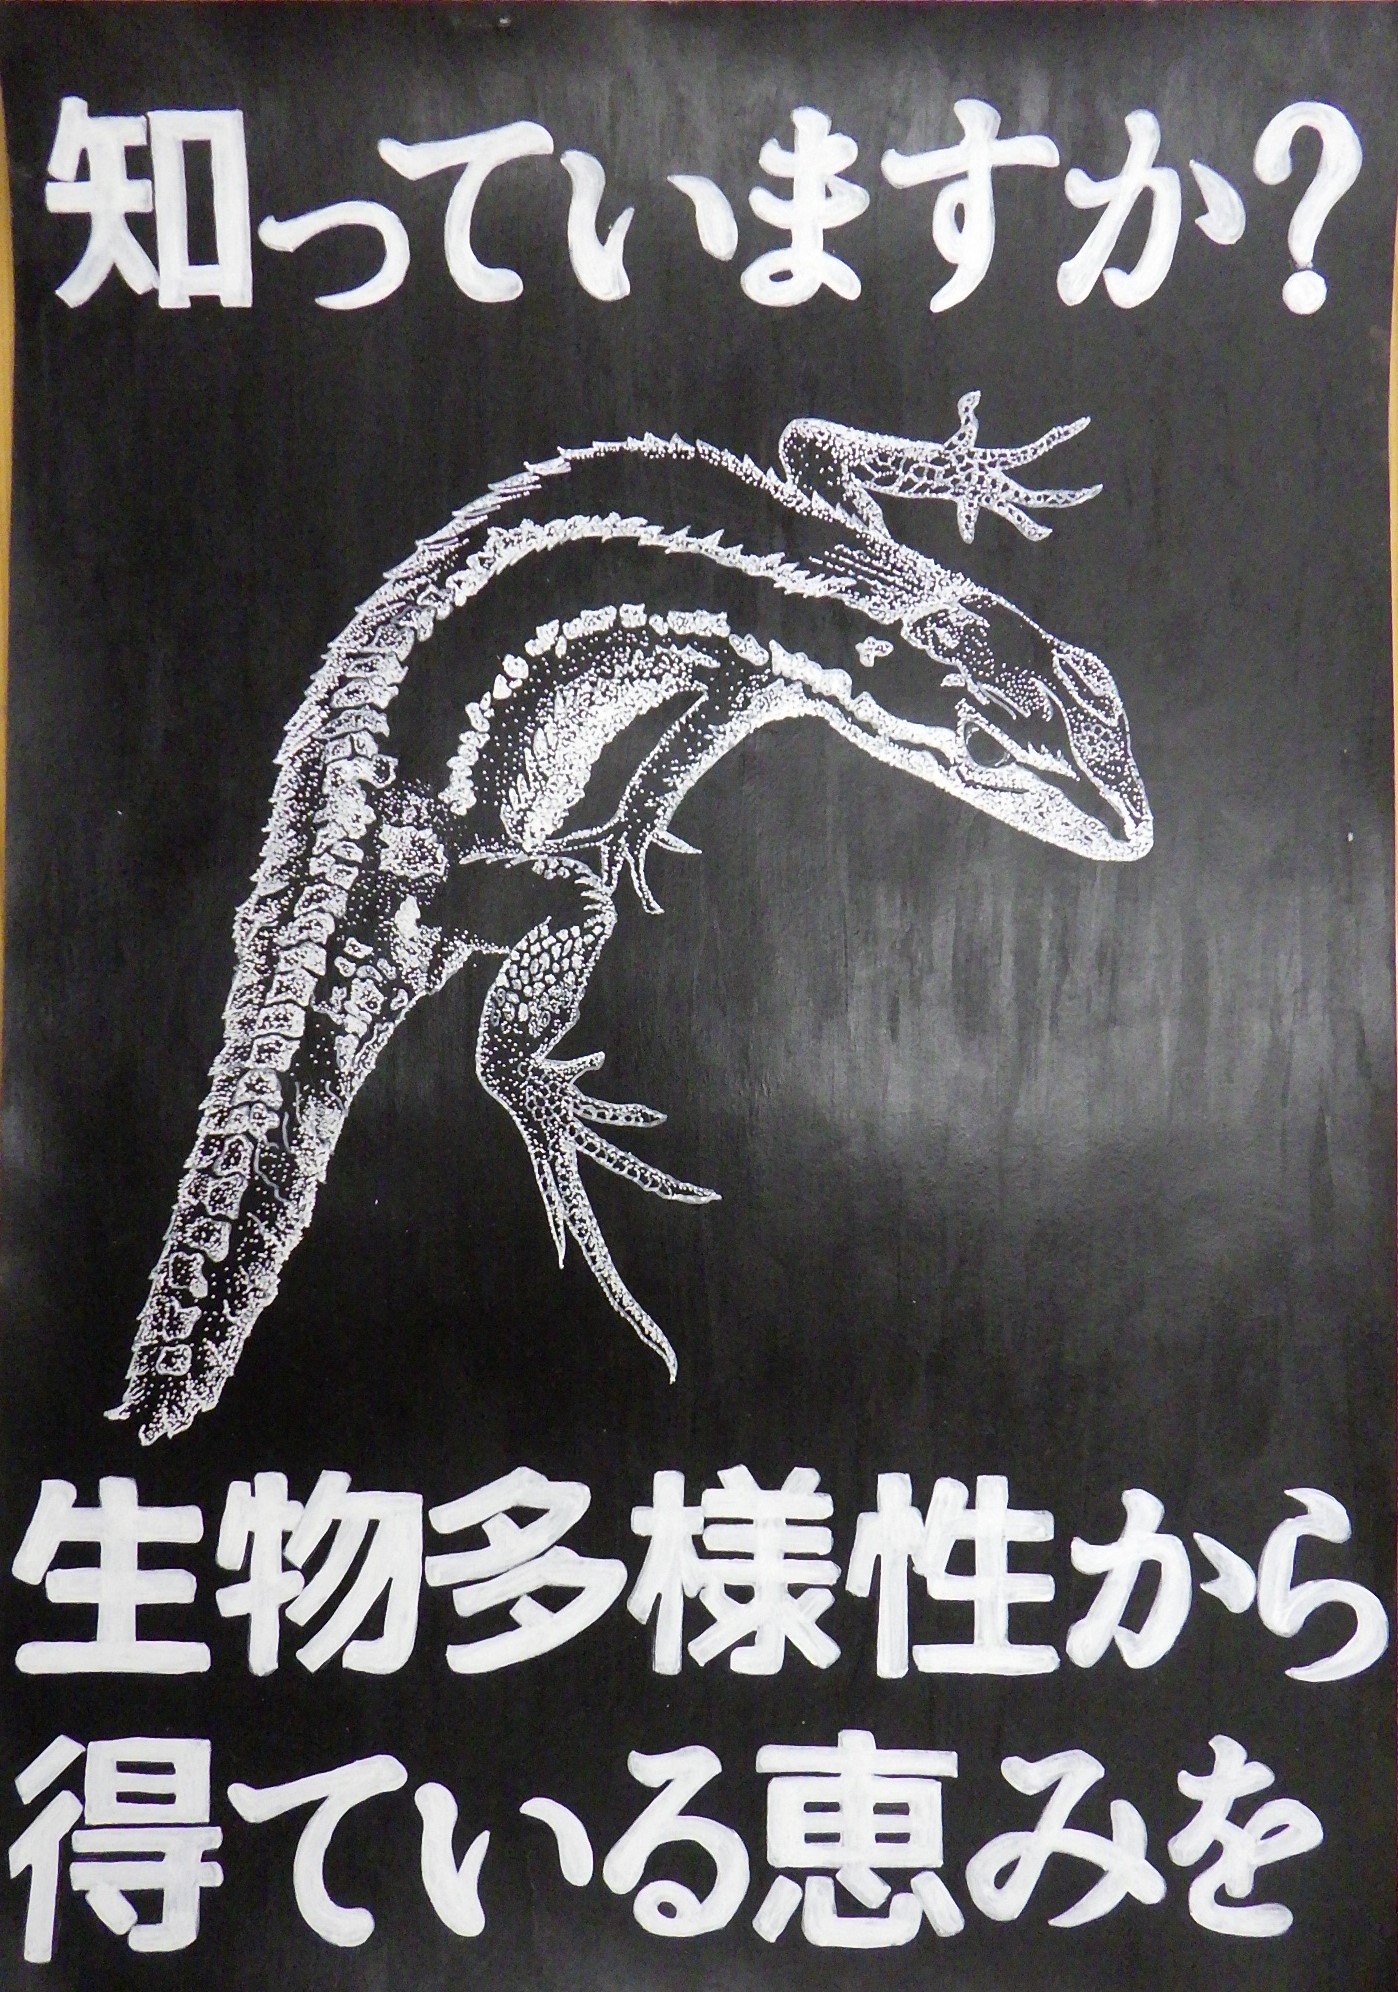 知っていますか?
生物多様性から
得ている恵みを